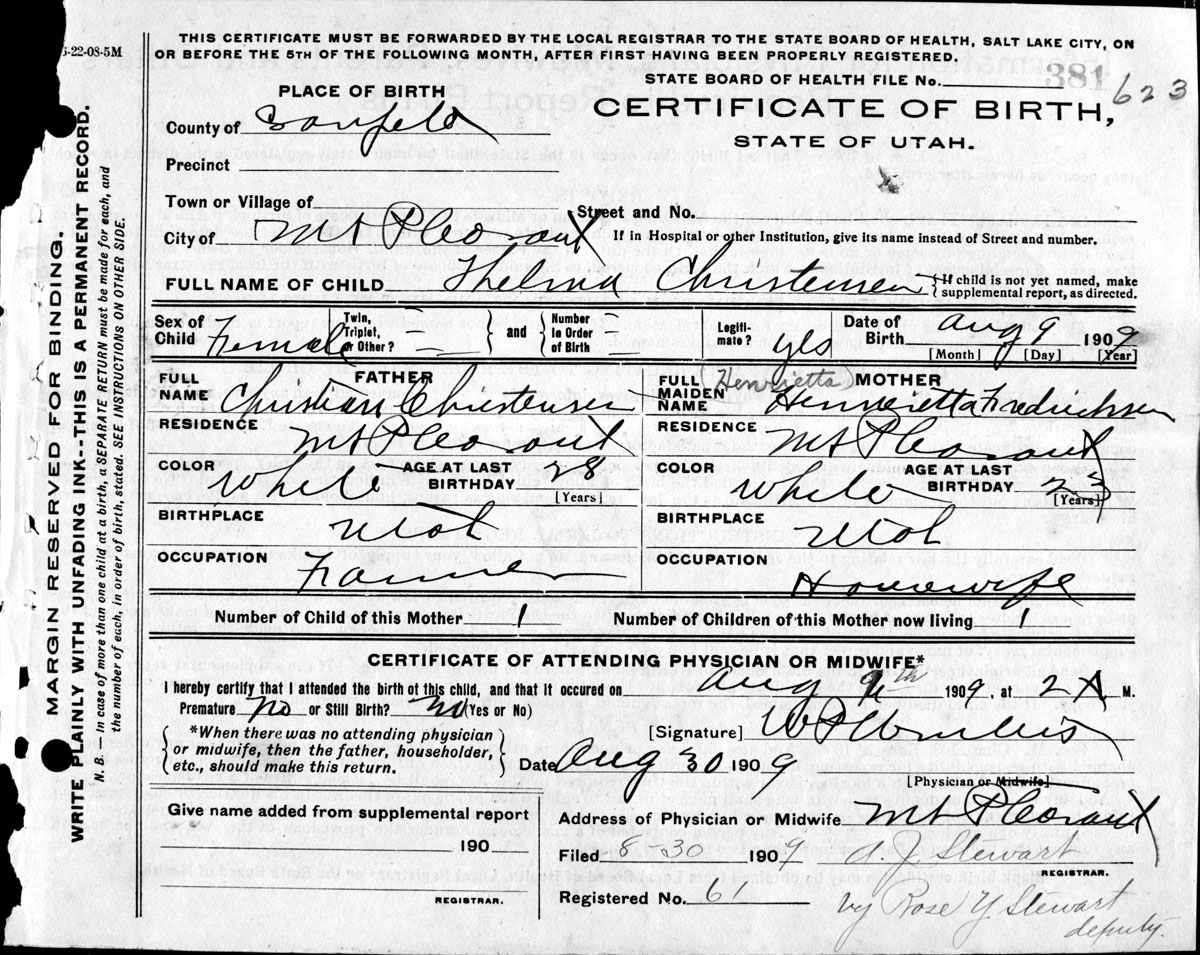 5-22-08-5M
THIS CERTIFICATE MUST BE FORWARDED BY THE LOCAL REGISTRAR TO THE STATE BOARD OF HEALTH, SALT LAKE CITY, ON
OR BEFORE THE 5TH OF THE FOLLOWING MONTH, AFTER FIRST HAVING BEEN PROPERLY REGISTERED.
STATE BOARD OF HEALTH FILE No. 381 623
PLACE OF BIRTH
CERTIFICATE OF BIRTH,
STATE OF UTAH.
County of Sanpete
Precinct
Town or Village of
Street and No.
City of Mt Pleasant
If in Hospital or other Institution, give its name instead of Street and number.
FULL NAME OF CHILD Thelma Christensen { If child is not yet named, make
supplemental report, as directed.
Sex of Child Female
Twin, Triplet, or Other? — } and { Number in Order of Birth —
Legiti- mate? yes
Date of Birth Aug 9 1909
[Month] [Day] [Year]
FATHER
FULL NAME Christian Christensen
RESIDENCE Mt Pleasant
COLOR White AGE AT LAST BIRTHDAY 28
[Years]
BIRTHPLACE Utah
OCCUPATION Farmer
(Henrietta) MOTHER
FULL MAIDEN NAME Henrietta Fredricksen
RESIDENCE Mt Pleasant
COLOR White AGE AT LAST BIRTHDAY 23
[Years]
BIRTHPLACE Utah
OCCUPATION Housewife
Number of Child of this Mother 1 Number of Children of this Mother now living 1
CERTIFICATE OF ATTENDING PHYSICIAN OR MIDWIFE*
I hereby certify that I attended the birth of this child, and that it occured on Aug 9th 1909, at 2 A M.
Premature No or Still Birth? No (Yes or No)
[Signature]
{ *When there was no attending physician
or midwife, then the father, householder,
etc., should make this return. }
Date Aug 30 1909
[Physician or Midwife]
Address of Physician or Midwife Mt Pleasant
Give name added from supplemental report
190
REGISTRAR.
Filed 8-30 1909 A. J. Stewart
REGISTRAR.
Registered No. 61
by Rose Y Stewart
deputy.
MARGIN RESERVED FOR BINDING.
WRITE PLAINLY WITH UNFADING INK--THIS IS A PERMANENT RECORD.
N. B. — In case of more than one child at a birth, a SEPARATE RETURN must be made for each, and
the number of each, in order of birth, stated. SEE INSTRUCTIONS ON OTHER SIDE.